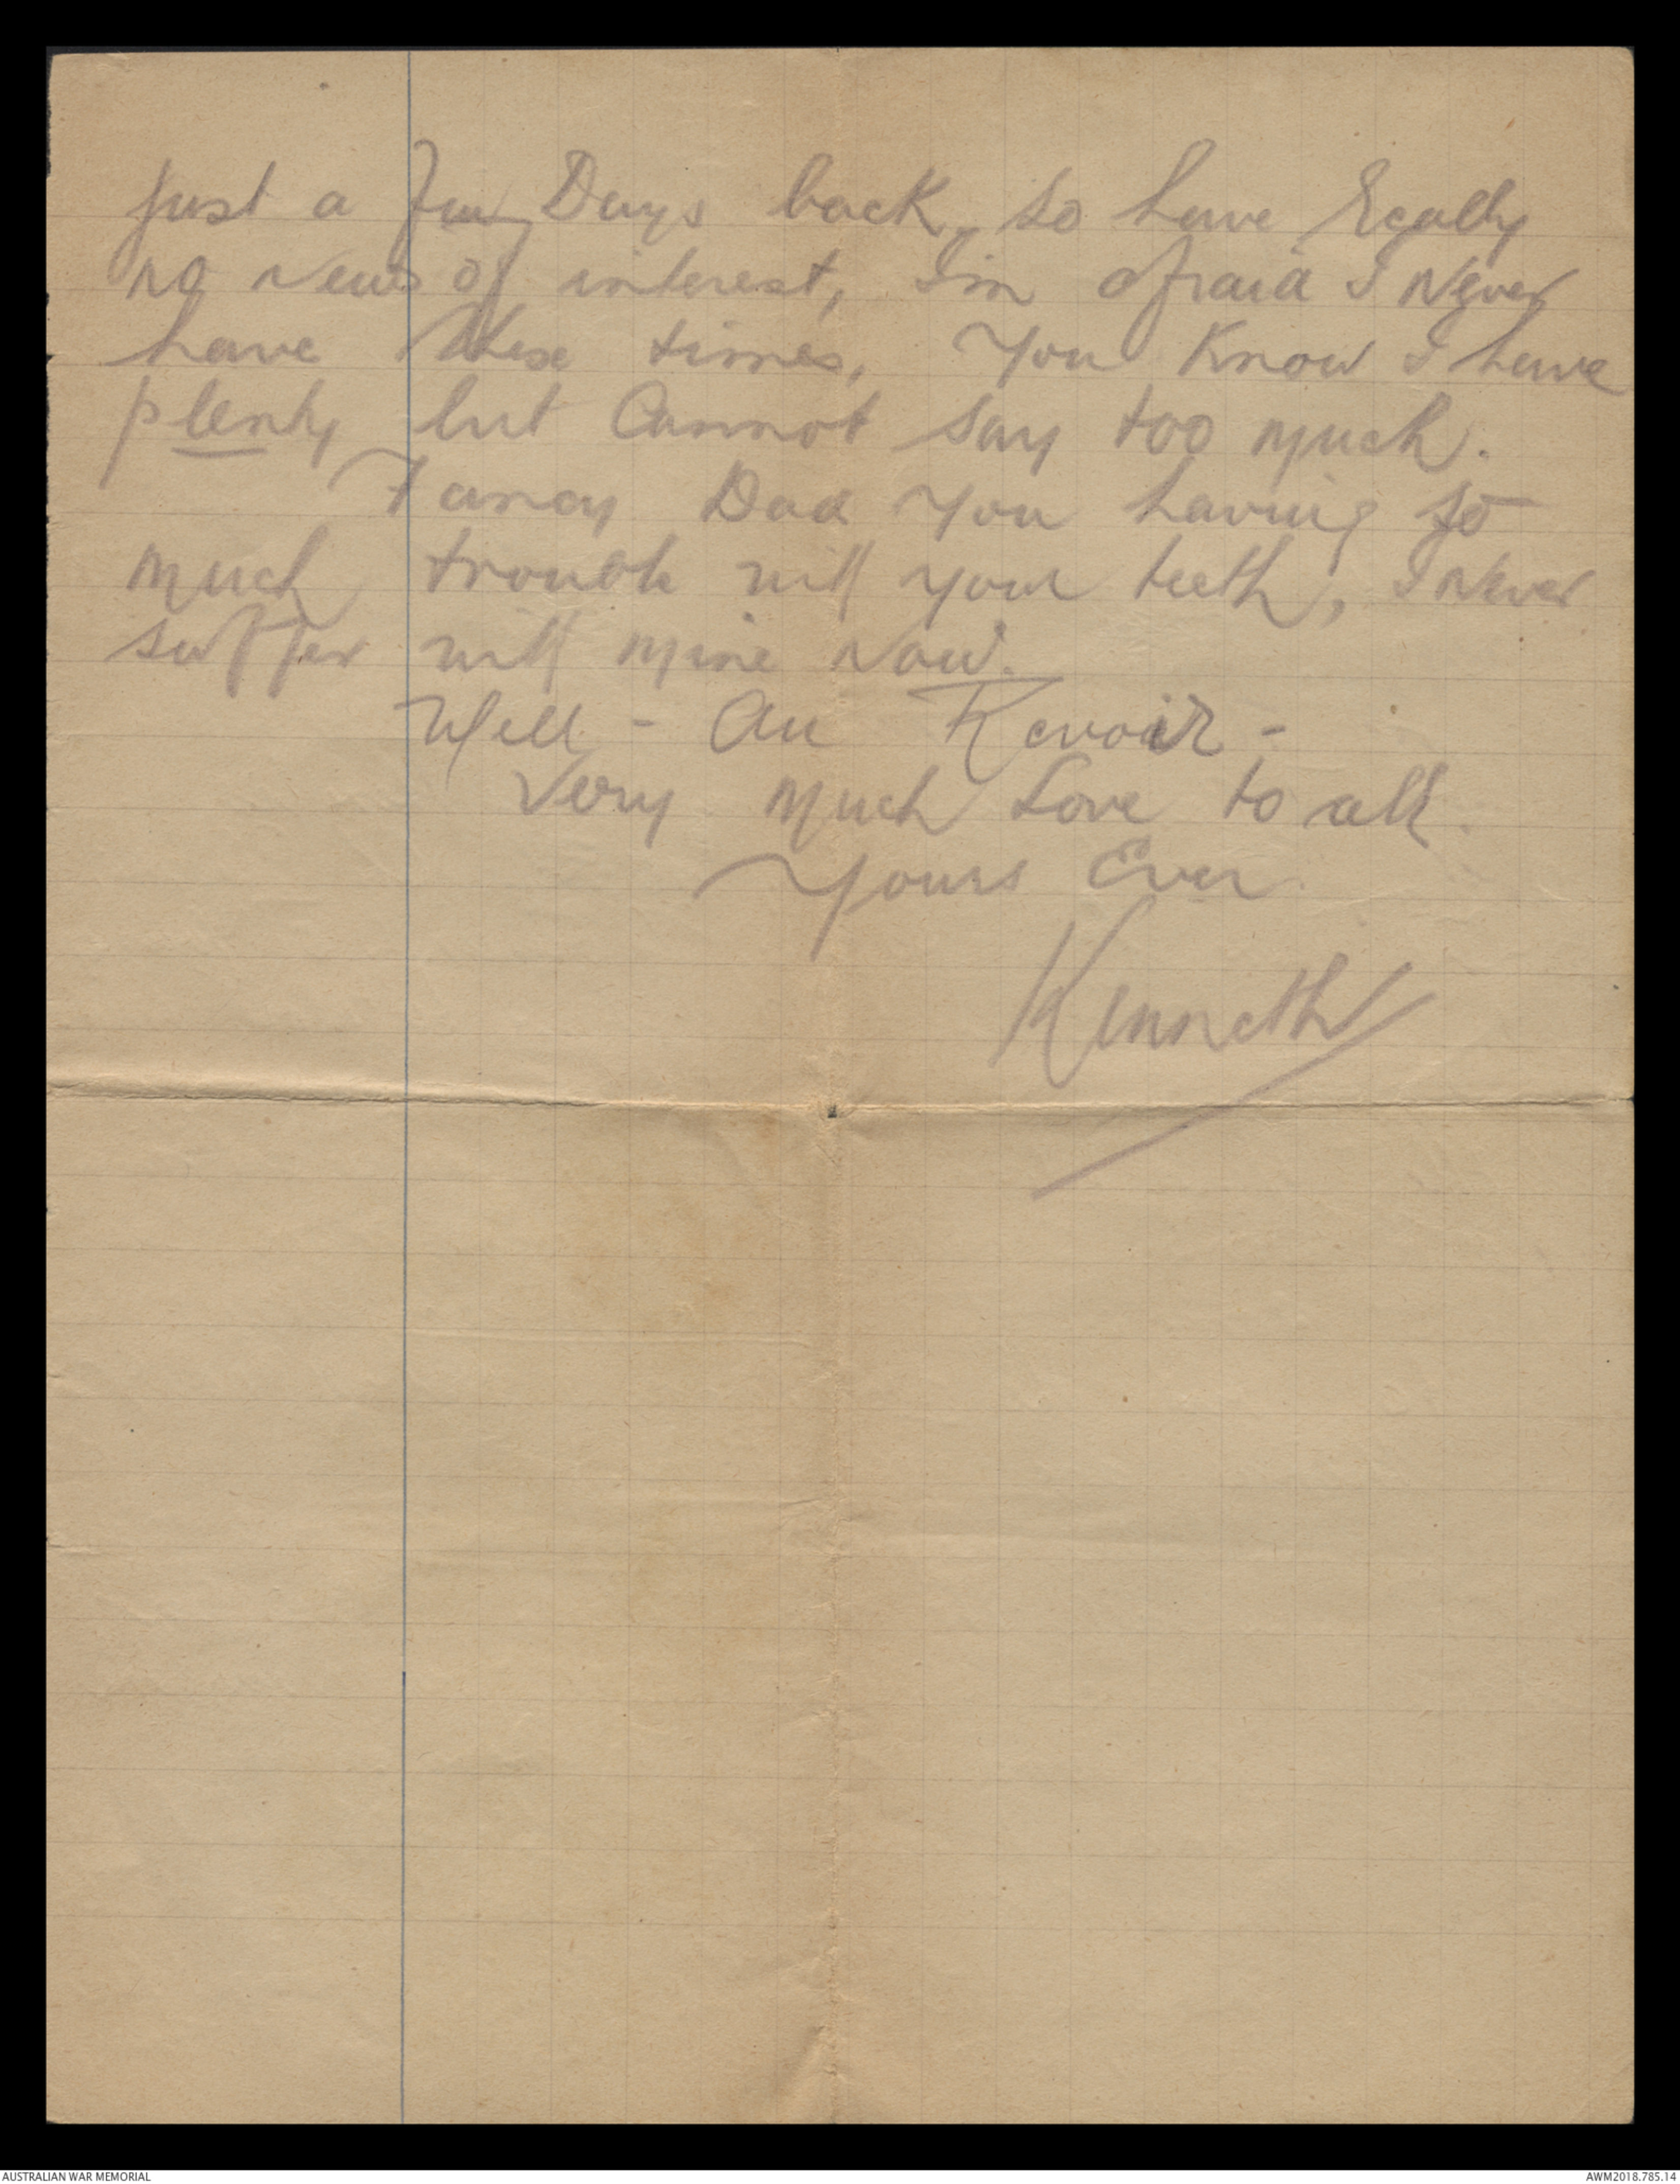 just a few Days back, so have Really
no News of interest, I'm afraid I Never
have these times, You Know I have
plenty but Cannot say too Much.
Fancy Dad You having so
Much trouble with your teeth, I Never
suffer with Mine Now.
Well - Au Revoir -
Very Much Love to all.
Yours Ever.
Kenneth
AUSTRALIAN WAR MEMORIAL
AWM2018.785.14